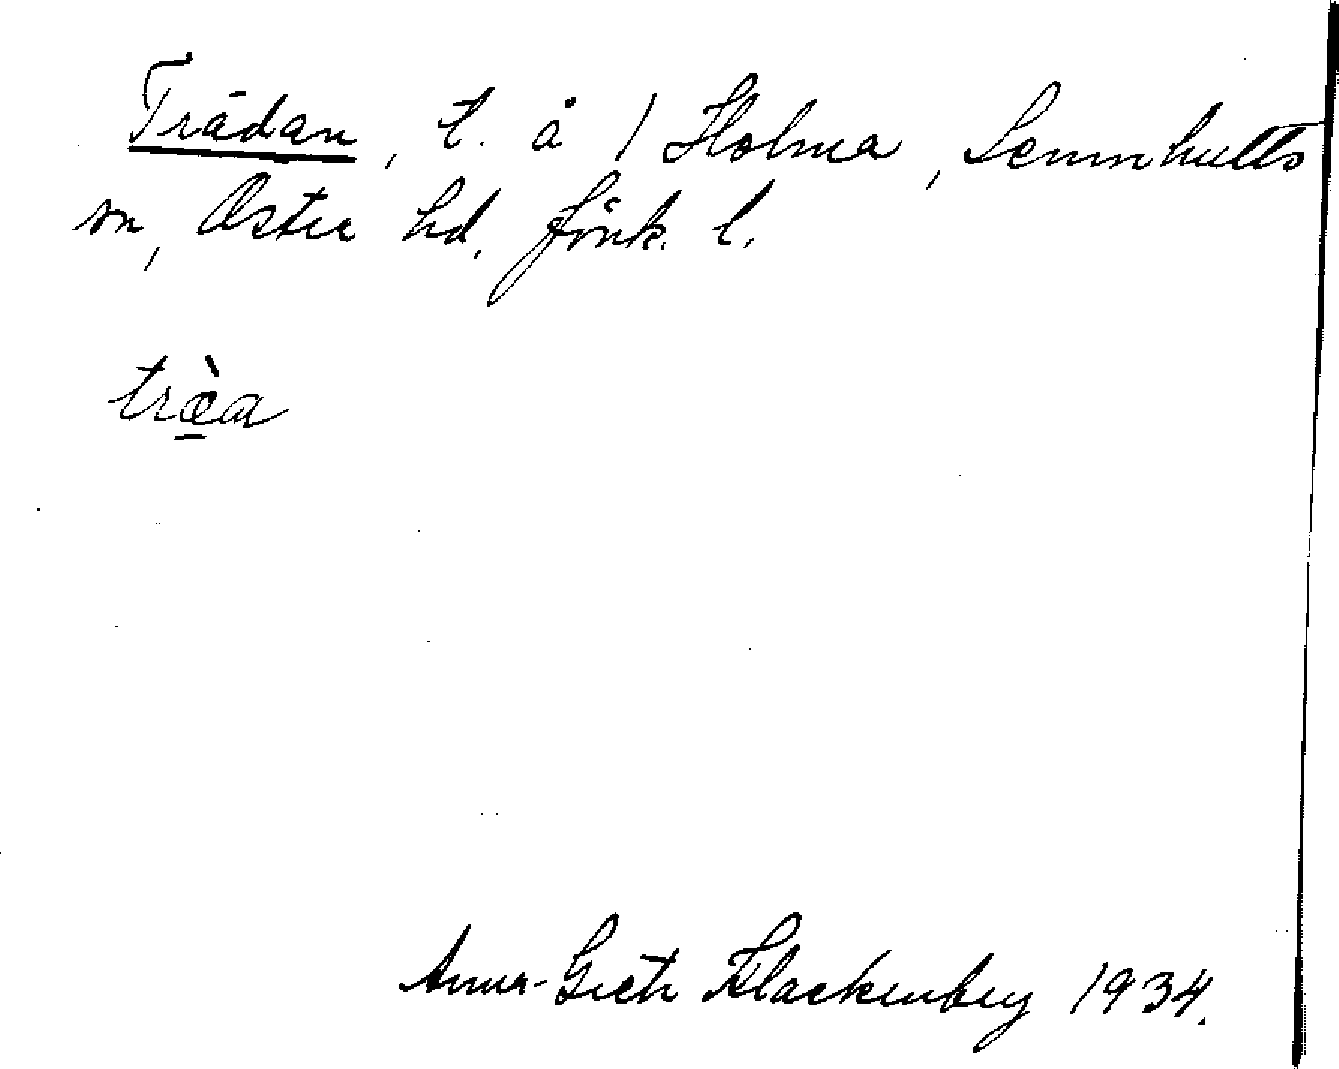 Trädan, t. å / Holma, Lemnhults
sn, Östra hd, Jönk. l.
træ̀a
Anna-Greta Klackenberg 1934.